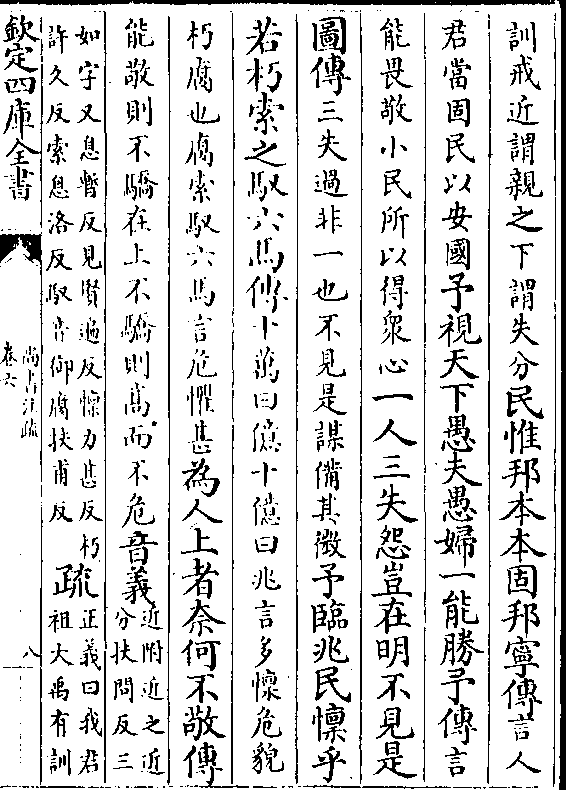 訓戒近謂親之下謂失分民惟邦本本固邦寧傳言人
君當固民以安國予視天下愚夫愚婦一能勝予傳言
能畏敬小民所以得衆心一人三失怨豈在明不見是
圖傳三失過非一也不見是謀備其微予臨兆民懍乎
若朽索之馭六馬傳十萬曰億十億曰兆言多懍危貌
朽腐也腐索馭六馬言危懼甚為人上者奈何不敬傳
能敬則不驕在上不驕則髙而不危音義近附近之近
分扶問反三
如字又息暫反見賢遍反懍力甚反朽
許久反索息洛反馭音御腐扶甫反
疏正義曰我君
祖大禹有訓
欽定四庫全書
尚書注疏
卷六
八